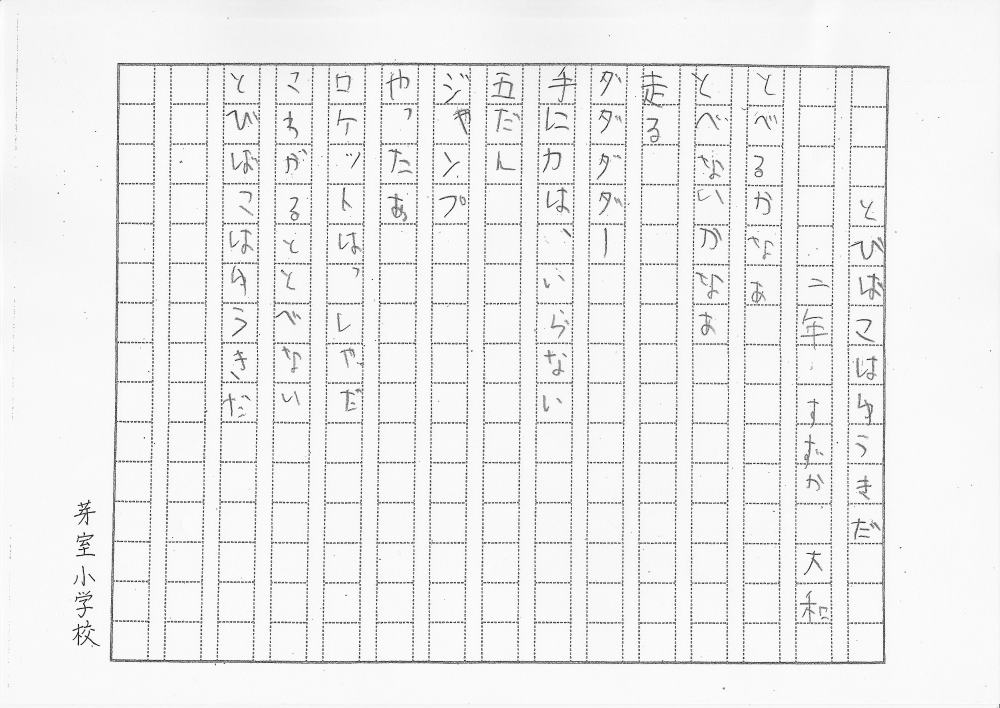 とびばこはゆうきだ
二年 すずか 大和
とべるかなぁ
とべないかなぁ
走る
ダダダダー
手に力は、いらない
五だん
ジャンプ
やったぁ
ロケットはっしゃだ
こわがるととべない
とびばこはゆうきだ
芽室小学校